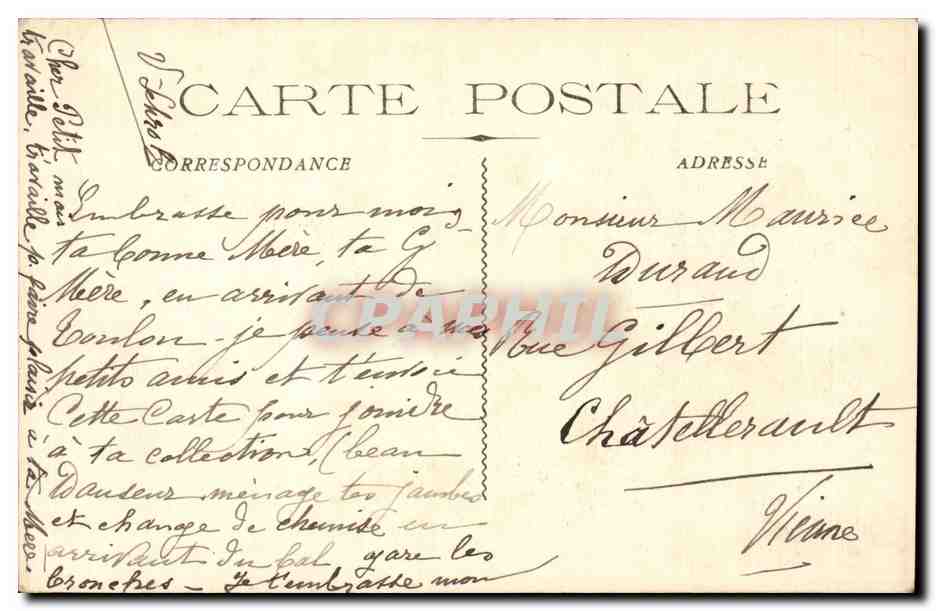 CARTE POSTALE
CORRESPONDANCE
ADRESSE
Embrasse pour moi
ta bonne Mère, ta G
Mère, en arrivant de
Toulon - je pense à mes
petits amis et t'envoie
Cette Carte pour joindre
à ta collection, (beau
Danseur ménage tes jambes
et change de chemise en
arrivant du bal gare les
bronches - Je t'embrasse mon
Cher Petit mais
travaille, travaille p. faire plaisir à ta Mère.
Monsieur Maurice
Durand
Rue Gilbert
Châtellerault
Vienne
CPAPHIL